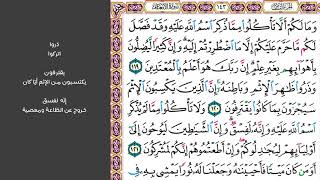 ١٤٣
وَمَا لَكُمْ أَلَّا تَأْكُلُوا۟ مِمَّا ذُكِرَ ٱسْمُ ٱللَّهِ عَلَيْهِ وَقَدْ فَصَّلَ
لَكُم مَّا حَرَّمَ عَلَيْكُمْ إِلَّا مَا ٱضْطُرِرْتُمْ إِلَيْهِ وَإِنَّ كَثِيرًا لَّيُضِلُّونَ
بِأَهْوَآئِهِم بِغَيْرِ عِلْمٍ إِنَّ رَبَّكَ هُوَ أَعْلَمُ بِٱلْمُعْتَدِينَ
وَذَرُوا۟ ظَٰهِرَ ٱلْإِثْمِ وَبَاطِنَهُۥٓ إِنَّ ٱلَّذِينَ يَكْسِبُونَ ٱلْإِثْمَ
سَيُجْزَوْنَ بِمَا كَانُوا۟ يَقْتَرِفُونَ ١٢٠ وَلَا تَأْكُلُوا۟ مِمَّا لَمْ يُذْكَرِ
ٱسْمُ ٱللَّهِ عَلَيْهِ وَإِنَّهُۥ لَفِسْقٌ وَإِنَّ ٱلشَّيَٰطِينَ لَيُوحُونَ إِلَىٰٓ
أَوْلِيَآئِهِمْ لِيُجَٰدِلُوكُمْ وَإِنْ أَطَعْتُمُوهُمْ إِنَّكُمْ لَمُشْرِكُونَ ١٢١
أَوَمَن كَانَ مَيْتًا فَأَحْيَيْنَٰهُ وَجَعَلْنَا لَهُۥ نُورًا يَمْشِى بِهِۦ فِى
ذروا
اتركوا
يقترفون
يكتسبون من الإثم أيا كان
إنه لفسق
خروج عن الطاعة ومعصية